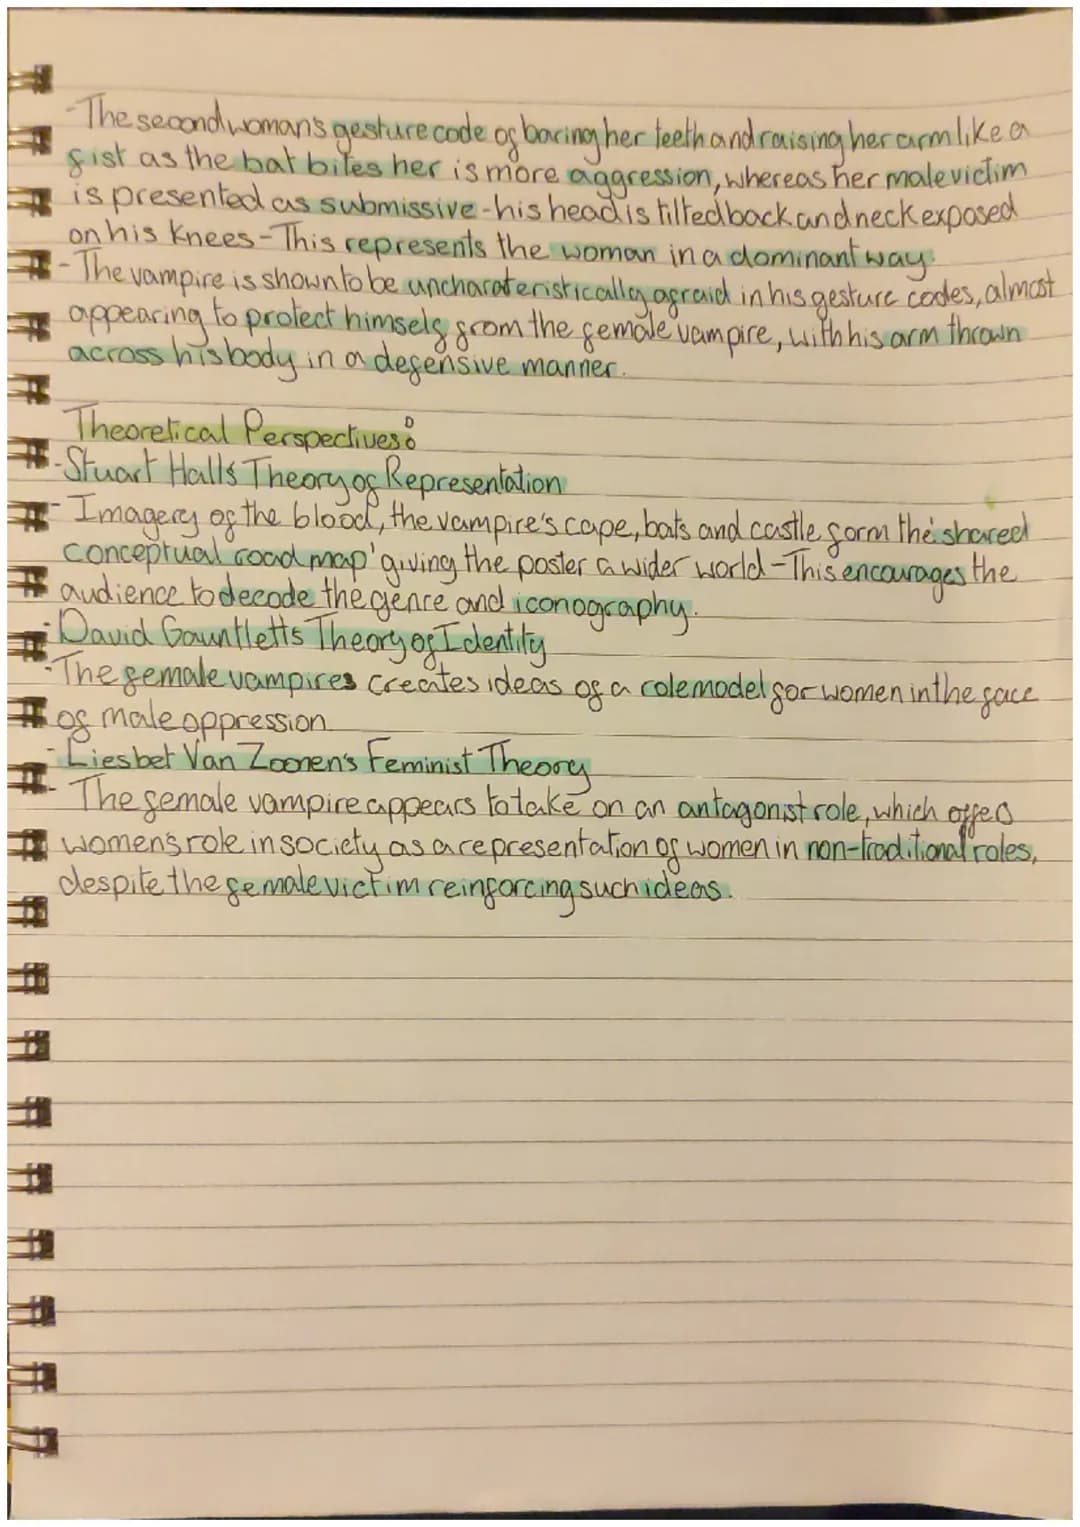 -The second woman's gesture code of baring her teeth and raising her arm like a
fist as the bat bites her is more aggression, whereas her male victim
is presented as submissive - his head is tilted back and neck exposed
on his knees - This represents the woman in a dominant way.
- The vampire is shown to be uncharateristically afraid in his gesture codes, almost
appearing to protect himself from the female vampire, with his arm thrown
across his body in a defensive manner.
Theoretical Perspectives:
-Stuart Hall's Theory of Representation
- Imagery of the blood, the vampire's cape, bats and castle form the 'shared
conceptual road map' giving the poster a wider world - This encourages the
audience to decode the genre and iconography.
-David Gauntlett's Theory of Identity
-The female vampires creates ideas of a role model for women in the face
of male oppression.
-Liesbet Van Zoonen's Feminist Theory
- The female vampire appears to take on an antagonist role, which
women's role in society as a representation of women in non-traditional roles,
despite the female victim reinforcing such ideas.